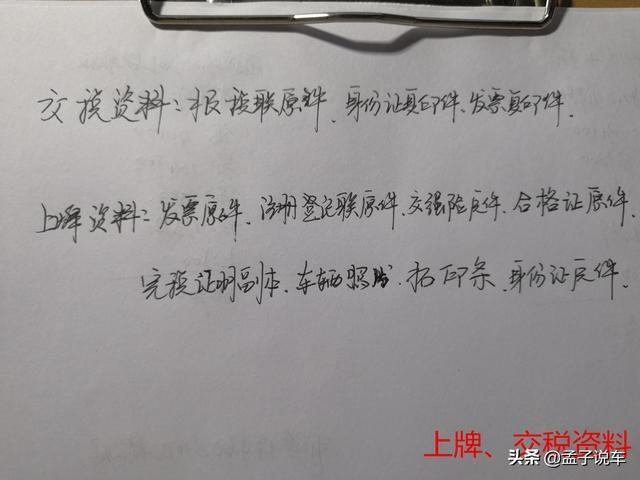 交税资料：报税联原件、身份证复印件、发票复印件.
上牌资料：发票原件、注册登记联原件、交强险原件、合格证原件、
完税证明副本、车辆照片、拓印条、身份证原件.
上牌、交税资料
头条 @孟子说车